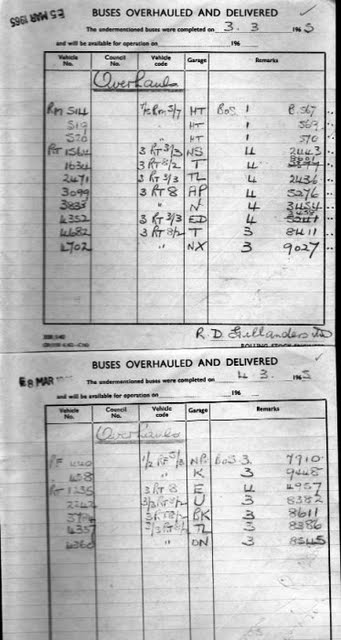 E5 MAR 1965
BUSES OVERHAULED AND DELIVERED
The undermentioned buses were completed on 3. 3. 196 5
and will be available for operation on 196
Vehicle No. Council No. Vehicle code Garage Remarks
Overhauls
RM 514 HT BoS 1 B.567
519 HT 1 569
520 HT 1 570
RT 1564 3 RT 3/3 NS 4 2443
1634 3 RT 8/2 T 4
2471 3 RT 3/3 TL 4 2436
3099 3 RT 8 AP 4 5276
3835 " N 4 3454
4352 3 RT 3/3 ED 4
4682 3 RT 8/2 T 3 8411
4702 " NX 3 9027
R. D. Gillanders
ROLLING STOCK ENGINEER
E8 MAR
BUSES OVERHAULED AND DELIVERED
The undermentioned buses were completed on 4 3. 196 5
and will be available for operation on 196
Vehicle No. Council No. Vehicle code Garage Remarks
Overhauls
RF 440 NP BoS 3 7910
458 " K 3 9448
RT 1235 3 RT 8 E 4 4957
U 3 8382
BK 3 8611
4357 TL 3 8386
4360 " ON 3 8545